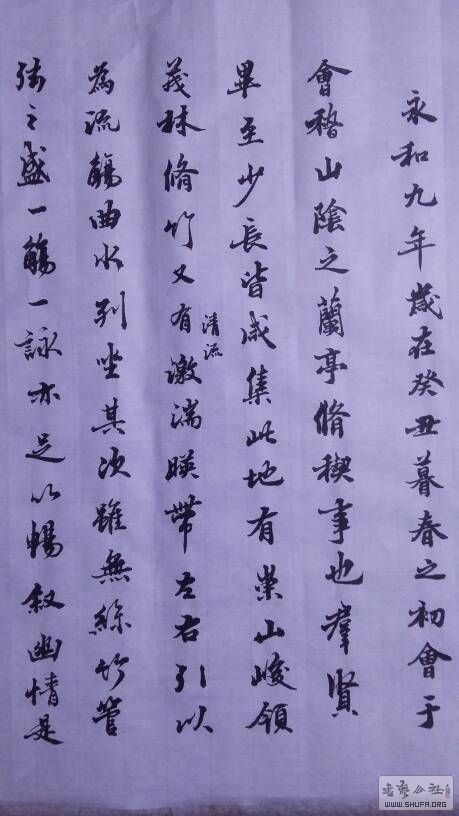 永和九年歲在癸丑暮春之初會于
會稽山陰之蘭亭脩稧事也羣賢
畢至少長皆咸集此地有崇山峻領
茂林脩竹又有清流激湍暎帶左右引以
為流觴曲水列坐其次雖無絲竹管
弦之盛一觴一詠亦足以暢叙幽情是
書藝公社
WWW.SHUFA.ORG